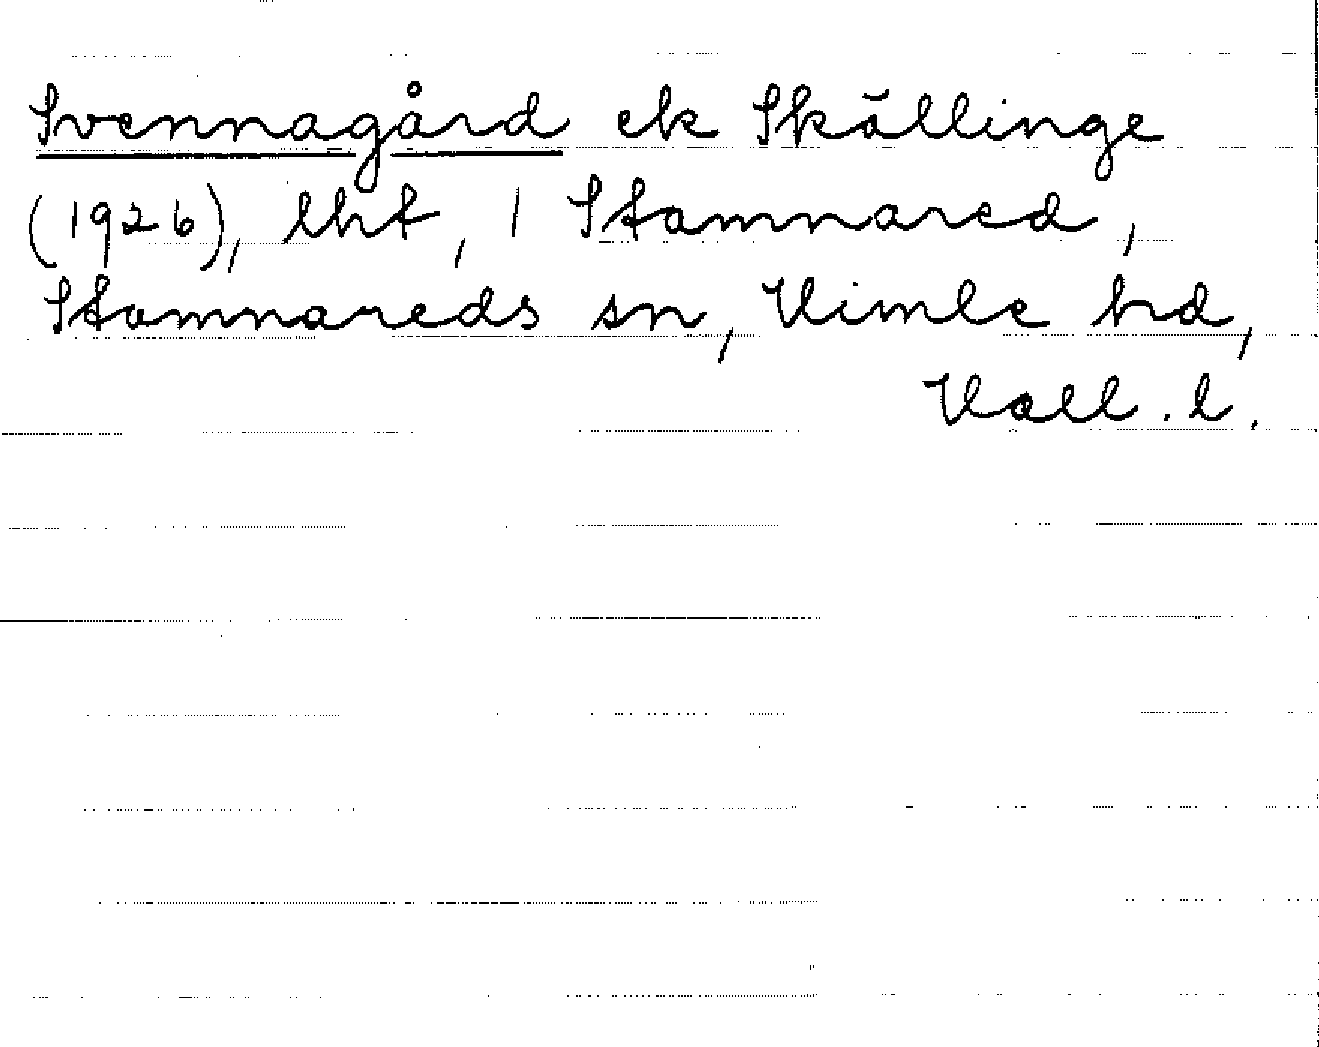 Svennagård ek Skällinge
(1926), lht, 1 Stamnared,
Stamnareds sn, Himle hd,
Hall. l.